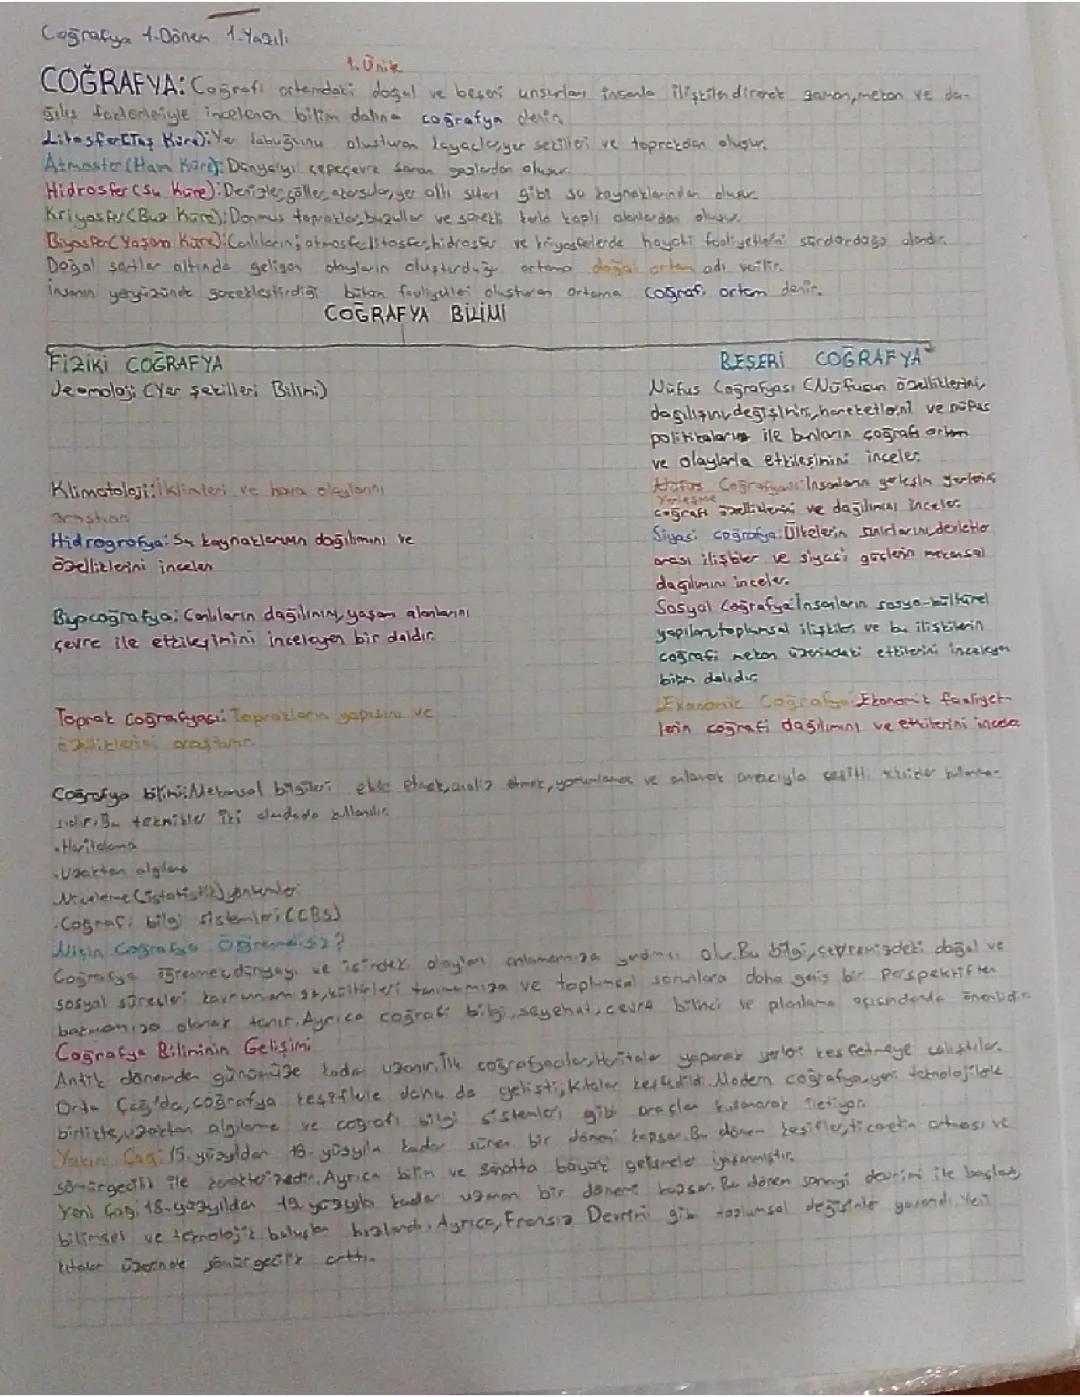 Coğrafya 1.Dönem 1.Yazılı
1.Ünite
COĞRAFYA: Coğrafi ortamdaki doğal ve beşeri unsurları insanla ilişkilendirerek zaman, mekan ve da-
ğılış faktörleriyle inceleyen bilim dalına coğrafya denir.
Litosfer(Taş Küre): Yer kabuğunu oluşturan kayaçlar, yer şekilleri ve topraktan oluşur.
Atmosfer (Hava Küre): Dünyayı çepeçevre saran gazlardan oluşur.
Hidrosfer (Su Küre): Denizler, göller, akarsular, yer altı suları gibi su kaynaklarından oluşur.
Kriyosfer(Buz Küre): Donmuş topraklar, buzullar ve sürekli karla kaplı alanlardan oluşur.
Biyosfer(Yaşam Küre): Canlıların; atmosfer, litosfer, hidrosfer ve kriyosferlerde hayati faaliyetlerini sürdürdüğü alandır.
Doğal şartlar altında gelişen olayların oluşturduğu ortama doğal ortam adı verilir.
İnsanın yeryüzünde gerçekleştirdiği bütün faaliyetleri oluşturan ortama coğrafi ortam denir.
COĞRAFYA BİLİMİ
FİZİKİ COĞRAFYA
Jeomoloji (Yer şekilleri Bilimi)
Klimatoloji: İklimleri ve hava olaylarını
araştırır
Hidrografya: Su kaynaklarının dağılımını ve
özelliklerini inceler
Biyocoğrafya: Canlıların dağılımını, yaşam alanlarını
çevre ile etkileşimini inceleyen bir daldır.
Toprak coğrafyası: Toprakların yapısını ve
özelliklerini araştırır.
BEŞERİ COĞRAFYA
Nüfus Coğrafyası (Nüfusun özelliklerini,
dağılışını, değişimini, hareketlerini ve nüfus
politikalarını ile bunların coğrafi ortam
ve olaylarla etkileşimini inceler.
Nüfus Coğrafyası: İnsanların yerleşim yerlerini
Yerleşme
coğrafi özelliklerini ve dağılımını inceler.
Siyasi coğrafya: Ülkelerin sınırlarını, devletler
arası ilişkiler ve siyasi güçlerin mekansal
dağılımını inceler.
Sosyal Coğrafya: İnsanların sosyo-kültürel
yapıları, toplumsal ilişkileri ve bu ilişkilerin
coğrafi mekan üzerindeki etkilerini inceleyen
bilim dalıdır.
Ekonomik Coğrafya: Ekonomik faaliyet-
lerin coğrafi dağılımını ve etkilerini inceler
Coğrafya bilimi: Mekansal bilgileri elde etmek, analiz etmek, yorumlamak ve anlamak amacıyla çeşitli teknikler
Bu teknikler iki alanda da kullanılır.
.Haritalama
.Uzaktan algılama
.Niceleme (istatistik) yöntemleri
.Coğrafi bilgi sistemleri (CBS)
Niçin Coğrafya Öğrenmeliyiz?
Coğrafya öğrenmek, dünyayı ve içindeki olayları anlamamıza yardımcı olur. Bu bilgi, çevremizdeki doğal ve
sosyal süreçleri kavramamıza, kültürleri tanımamıza ve toplumsal sorunlara daha geniş bir perspektiften
bakmamıza olanak tanır. Ayrıca coğrafi bilgi, seyehat, çevre bilinci ve planlama açısından da önemlidir.
Coğrafya Biliminin Gelişimi
Antik dönemden günümüze kadar uzanır. İlk coğrafyacılar, Haritalar yaparak yerleri keşfetmeye çalıştılar.
Orta Çağ'da, coğrafya keşiflerle daha da gelişti, Kıtalar keşfedildi. Modern coğrafya, yeni teknolojilerle
birlikte, uzaktan algılama ve coğrafi bilgi sistemleri gibi araçlar kullanarak ilerliyor.
Yakın Çağ: 15. yüzyıldan 18. yüzyıla kadar süren bir dönemi kapsar. Bu dönem keşifler, ticaretin artması ve
sömürgecilik ile karakterizedir. Ayrıca bilim ve sanatta büyük gelişmeler yaşanmıştır.
Yeni Çağ: 18. yüzyıldan 19. yüzyıla kadar uzanan bir dönemi kapsar. Bu dönem sanayi devrimi ile başladı,
bilimsel ve teknolojik buluşlar hızlandı. Ayrıca, Fransız Devrimi gibi toplumsal değişimler yaşandı. Yeni
kıtalar üzerinde sömürgecilik arttı.